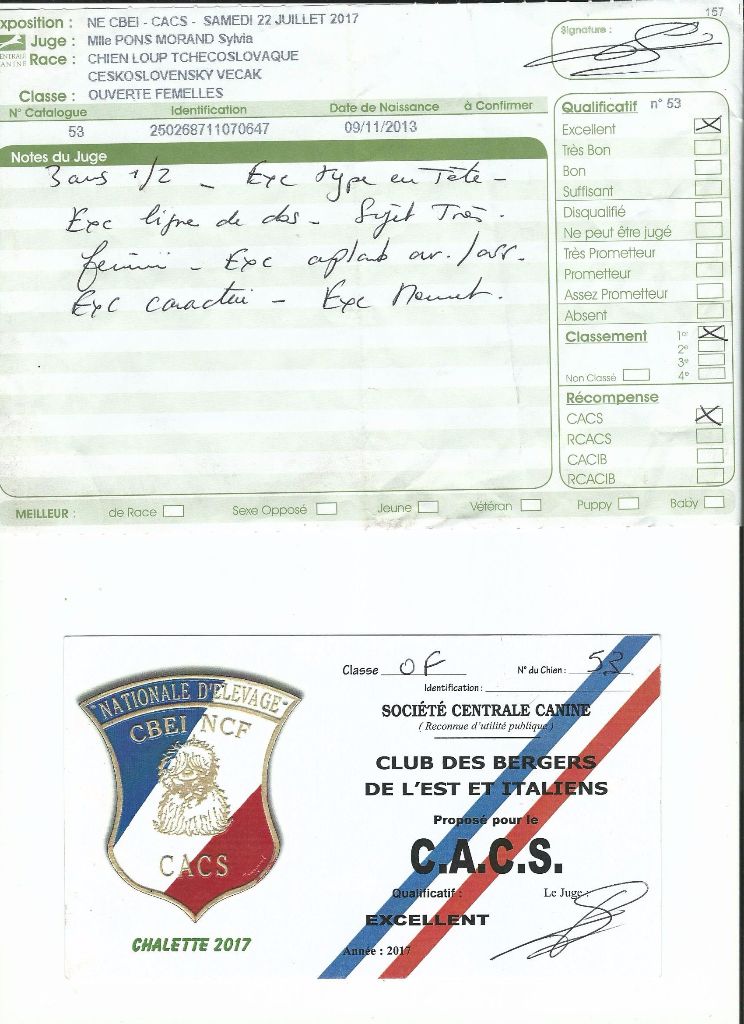 xposition : NE CBEI - CACS - SAMEDI 22 JUILLET 2017
Juge : Mlle PONS MORAND Sylvia
Race : CHIEN LOUP TCHECOSLOVAQUE
CESKOSLOVENSKY VECAK
Classe : OUVERTE FEMELLES
157
Signature :
N° Catalogue Identification Date de Naissance à Confirmer
53 250268711070647 09/11/2013
Notes du Juge
3 ans 1/2 - Exc type en Tête -
Exc ligne de dos - Sujet Très
féminin - Exc aplomb av./arr.
Exc caractère - Exc
Qualificatif n° 53
Excellent
Très Bon
Bon
Suffisant
Disqualifié
Ne peut être jugé
Très Prometteur
Prometteur
Assez Prometteur
Absent
Classement 1er
2e
3e
Non Classé 4e
Récompense
CACS
RCACS
CACIB
RCACIB
MEILLEUR : de Race Sexe Opposé Jeune Vétéran Puppy Baby
"NATIONALE D'ELEVAGE"
CBEI NCF
CACS
CHALETTE 2017
Classe OF N° du Chien : 53
Identification :
SOCIÉTÉ CENTRALE CANINE
( Reconnue d'utilité publique )
CLUB DES BERGERS
DE L'EST ET ITALIENS
Proposé pour le
C.A.C.S.
Qualificatif : Le Juge :
EXCELLENT
Année : 2017